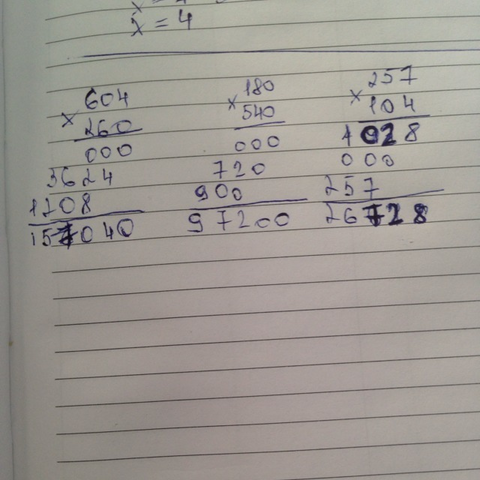 x = 4
604
× 260
000
3624
1208
157040
180
× 540
000
720
900
97200
257
× 104
1028
000
257
26728